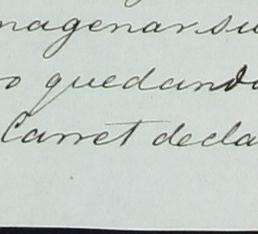 magenar su
o quedando
Carret decla